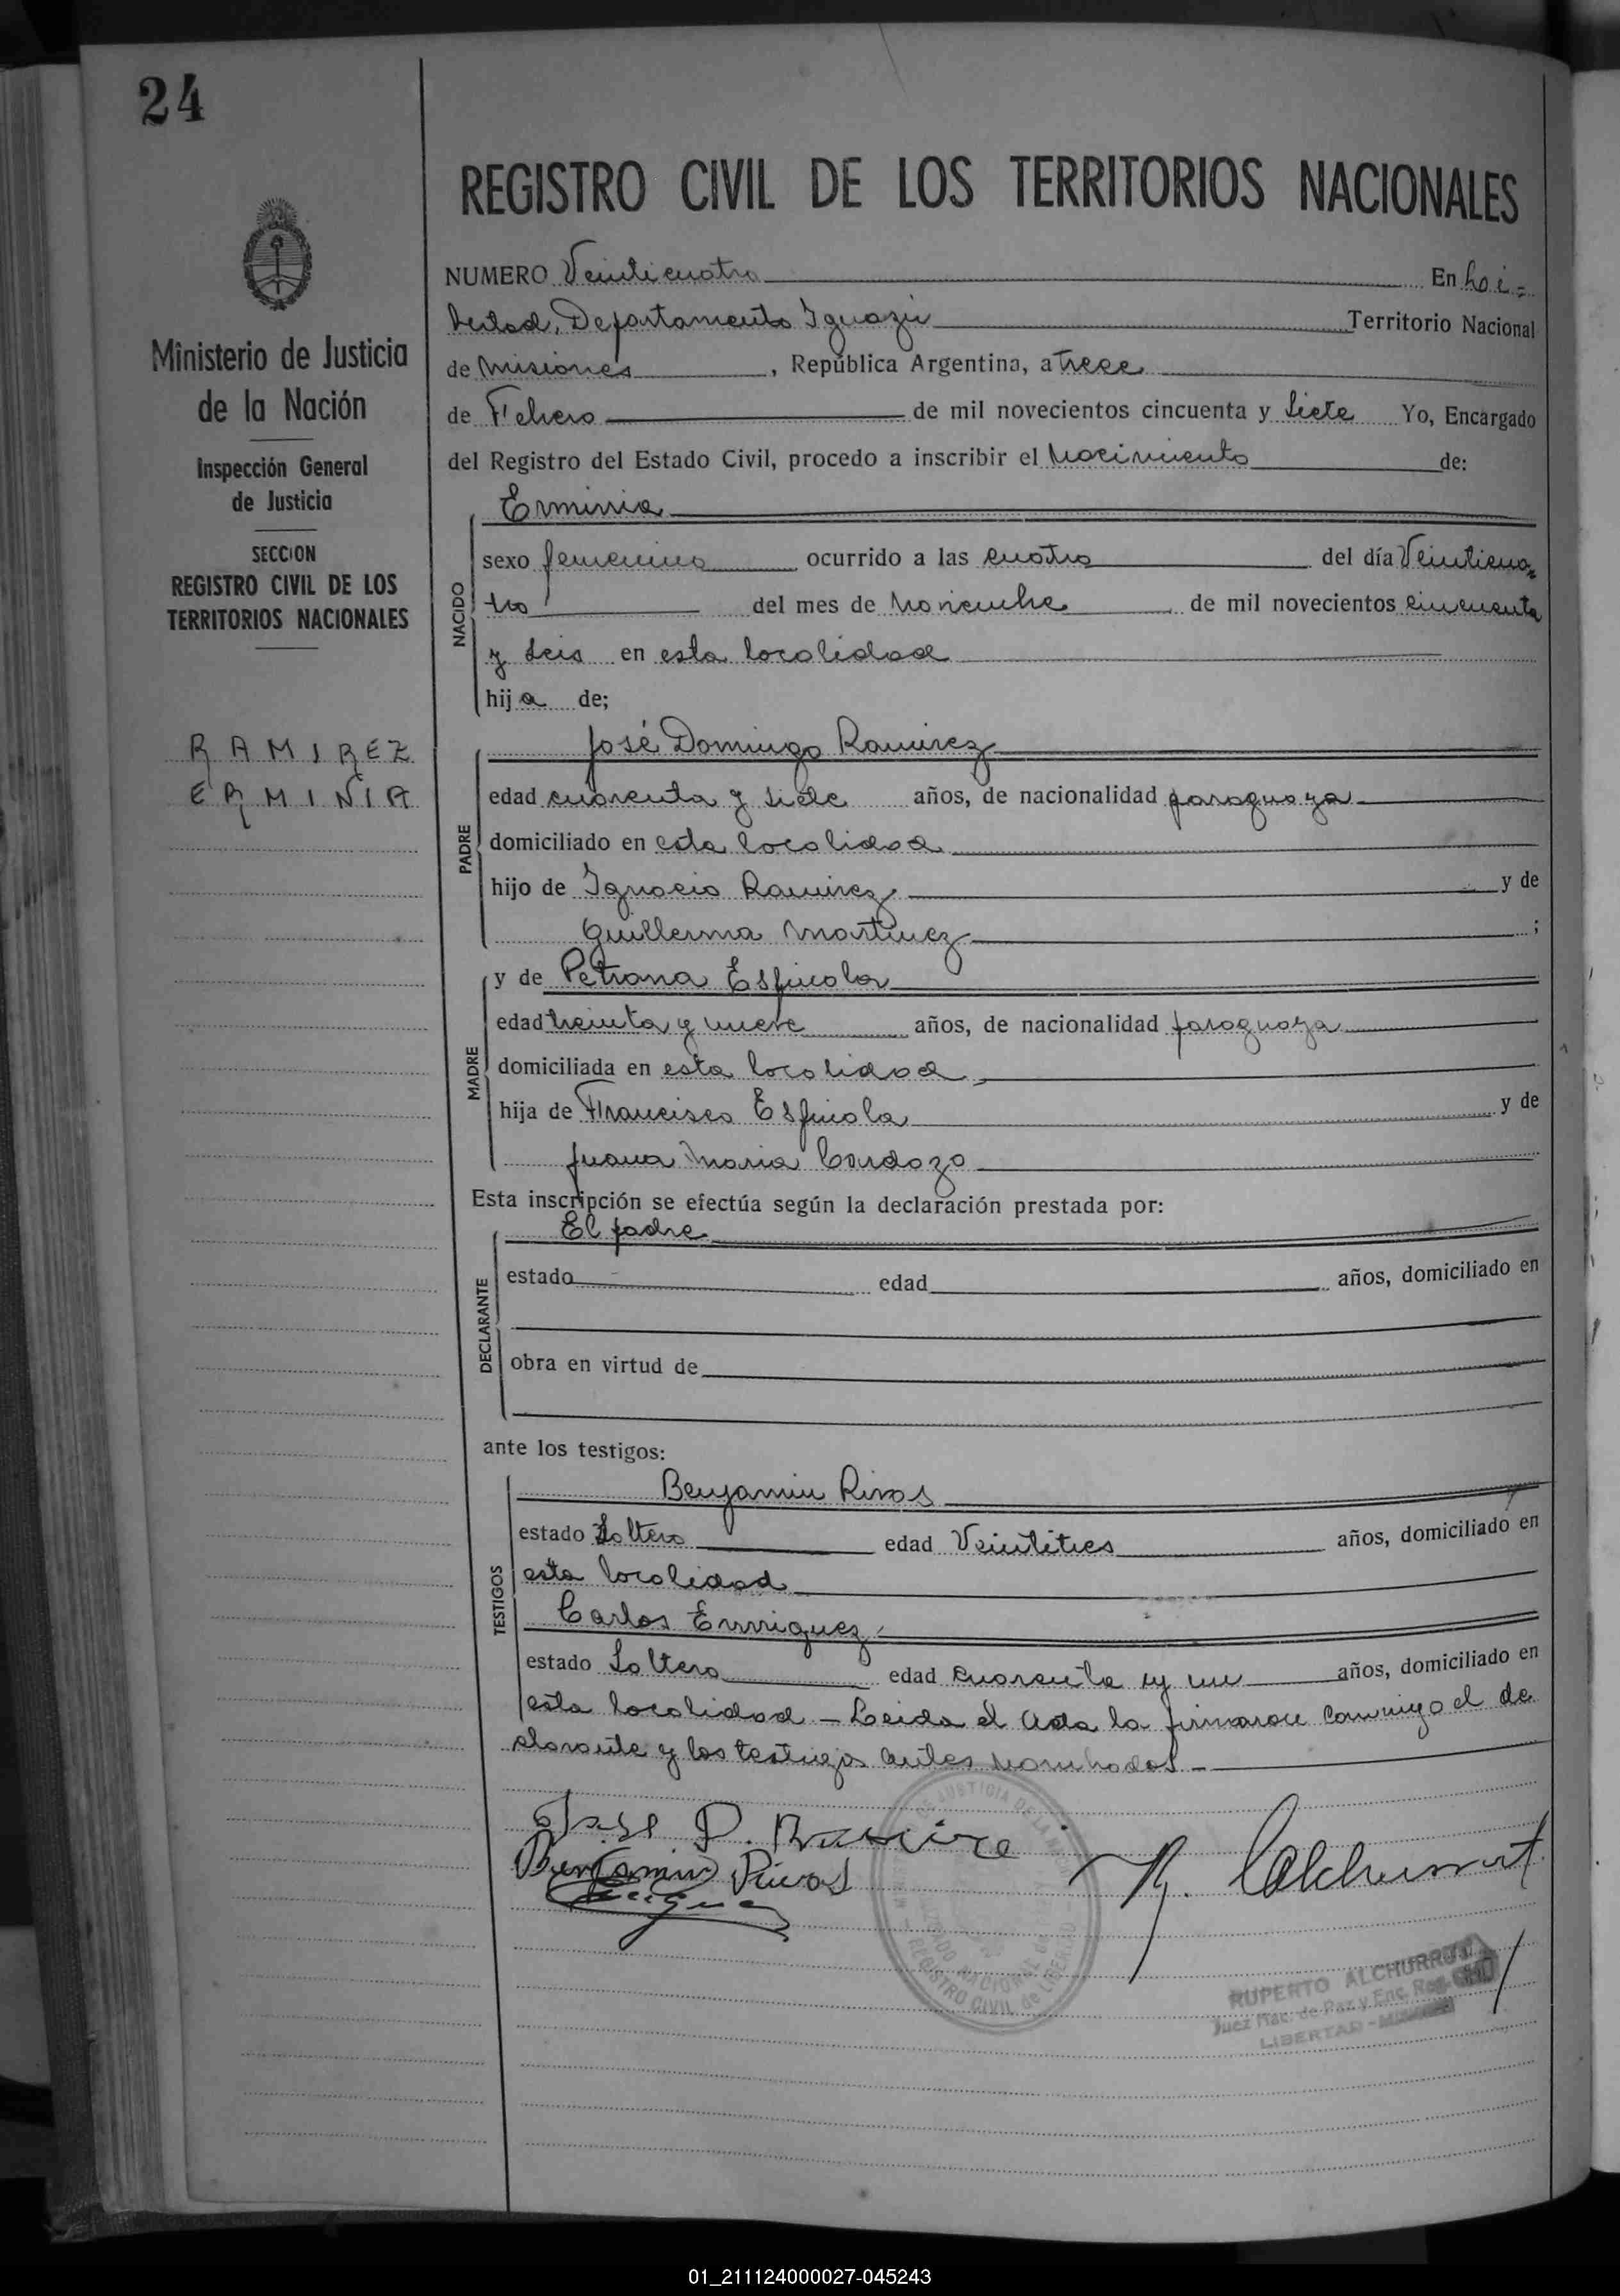 24
REGISTRO CIVIL DE LOS TERRITORIOS NACIONALES
Ministerio de Justicia
de la Nación
Inspección General
de Justicia
SECCION
REGISTRO CIVIL DE LOS
TERRITORIOS NACIONALES
RAMIREZ
ERMINIA
NUMERO Veinticuatro En
bertad, Departamento Iguazú Territorio Nacional
de Misiones, República Argentina, a trece
de Febrero de mil novecientos cincuenta y siete Yo, Encargado
del Registro del Estado Civil, procedo a inscribir el Nacimiento de:
NACIDO
Erminia
sexo femenino ocurrido a las cuatro del día Veinticua
tro del mes de Noviembre de mil novecientos cincuenta
y seis en esta localidad
hija de;
PADRE
José Domingo Ramirez
edad cuarenta y siete años, de nacionalidad paraguaya
domiciliado en esta localidad
hijo de Ignacio Ramirez y de
Guillerma Martinez ;
MADRE
y de Petrona Espinola
edad treinta y nueve años, de nacionalidad paraguaya
domiciliada en esta localidad
hija de Francisco Espinola y de
Juana Maria Cardozo
Esta inscripción se efectúa según la declaración prestada por:
DECLARANTE
El padre
estado edad años, domiciliado en
obra en virtud de
ante los testigos:
TESTIGOS
Benjamin Rivas
estado Soltero edad Veintitres años, domiciliado en
esta localidad
Carlos Enrriquez
estado Soltero edad cuarenta y un años, domiciliado en
esta localidad - Leida el Acta la firmaron conmigo el de
clarante y los testigos antes nombrados -
Jose D. Ramire
Benjamin Rivas
R. Alchurrut
DE JUSTICIA DE LA
JUZGADO NACIONAL DE
REGISTRO CIVIL de LIBERTAD
RUPERTO ALCHURRUT
Juez Nac. de Paz y Enc. Reg.
LIBERTAD - MISIONES
01_211124000027-045243